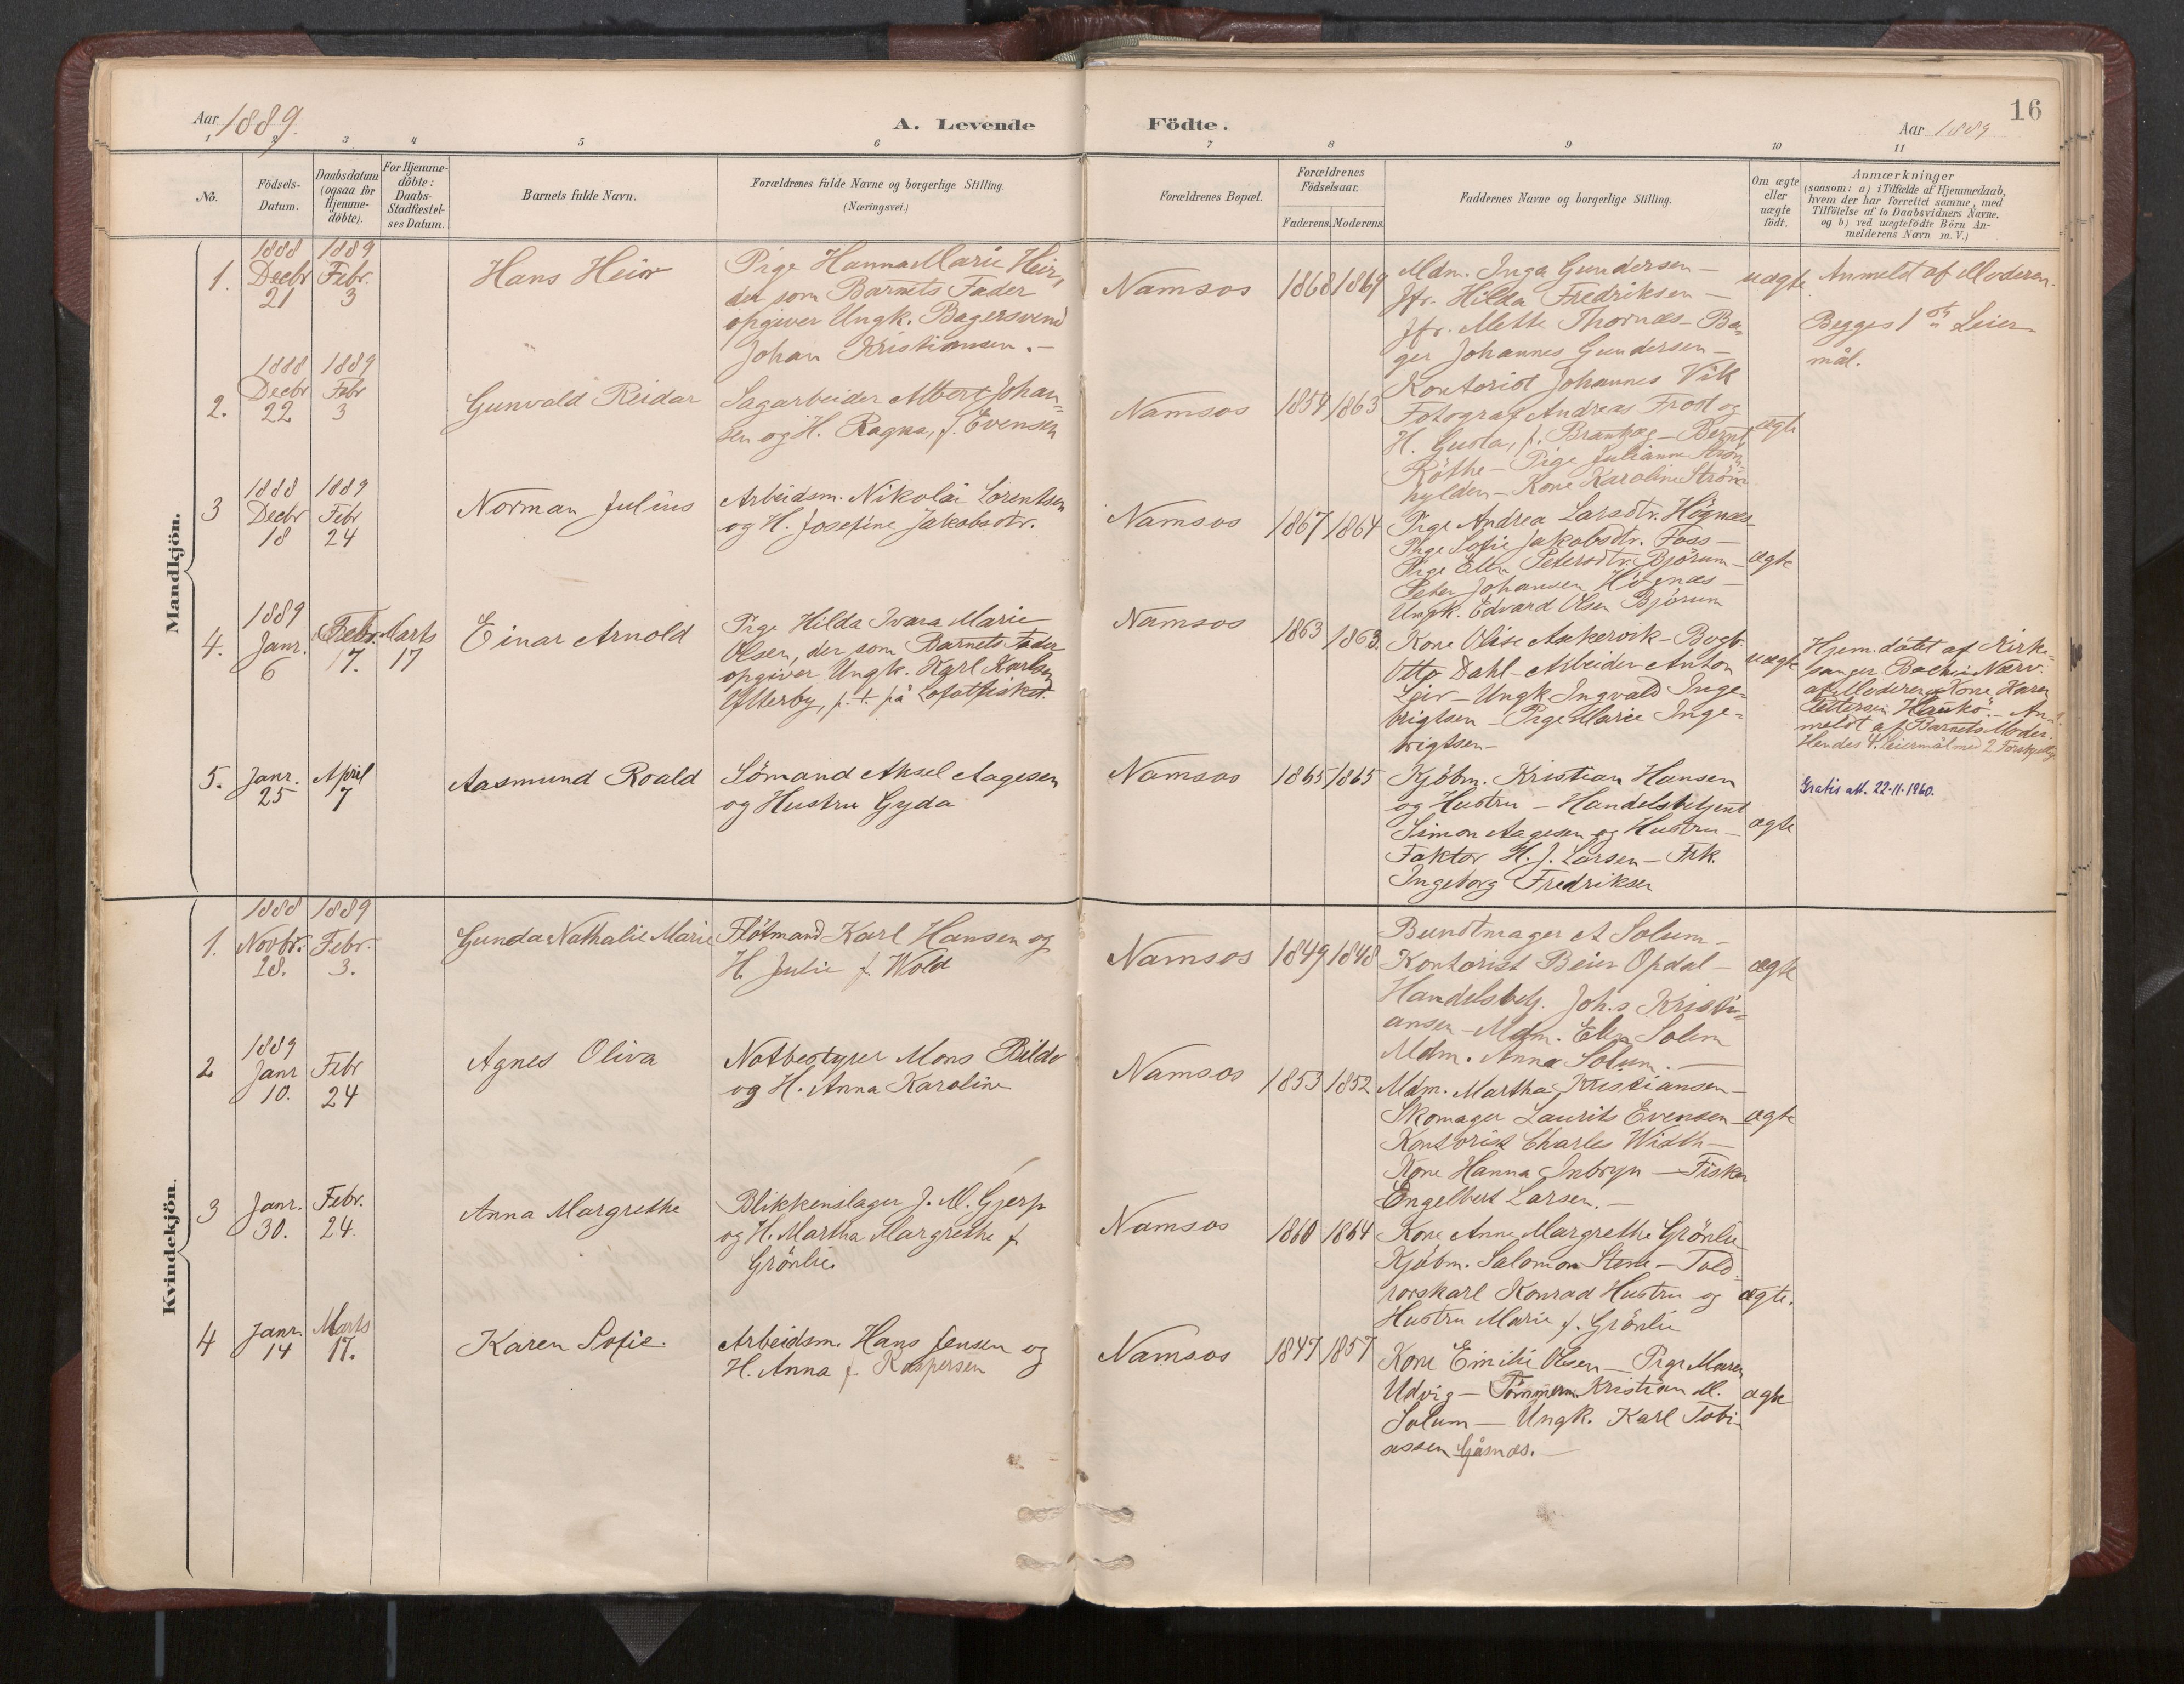 Aar 1889.
A. Levende Födte.
Aar 1889
16
1 2 3 4 5 6 7 8 9 10 11
No.
Födsels-Datum.
Daabsdatum (ogsaa for Hjemme-döbte).
For Hjemme-döbte: Daabs-Stadfœstel-ses Datum.
Barnets fulde Navn.
Forœldrenes fulde Navne og borgerlige Stilling. (Næringsvei.)
Forœldrenes Bopæl.
Forœldrenes Födselsaar.
Faderens. Moderens.
Faddernes Navne og borgerlige Stilling.
Om œgte eller uœgte födt.
Anmœrkninger
(saasom: a) i Tilfœlde af Hjemmedaab,
hvem der har forrettet samme, med
Tilföielse af to Daabsvidners Navne.
og b) ved uœgtefödte Börn An-
melderens Navn m. V.)
Mandkjön.
1.
1888 Decbr 21
1889 Febr. 3
Hans Heir
Pige Hanna Marie Heir,
der som Barnets Fader
opgiver Ungk. Bagersvend
Johan Kristiansen.-
Namsos
1868 1869
Mdm. Inga Gundersen -
Jfr. Hilda Fredriksen -
Jfr. Mette Thornæs - Ba-
ger Johannes Gundersen -
uægte
Anmeldt af Moderen.
Begges 1ste Leier-
mål.
2.
1888 Decbr 22
1889 Febr 3
Gunvald Reidar
Sagarbeider Albert Johan-
sen og H. Ragna, f. Evensen
Namsos
1854 1863
Kontorist Johannes Vik
Fotograf Andreas Frost og
H. Gusta, f. - Bernt
Köthe - Pige Julianne
- Kone Karoline Ström
ægte
3
1888 Decbr 18
1889 Febr 24
Norman Julius
Arbeidsm. Nikolai Lorentsen
og H. Josefine Jakobsdtr.
Namsos
1867 1864
Pige Andrea Larsdtr. Högnæs -
Pige Sofie Jakobsdtr. Foss -
Pige Elen Petersdtr. Björum -
Peter Johansen Högnæs -
Ungk. Edvard Olsen Björum
ægte
4.
1889 Janr. 6
Febr. 17.
Marts 17
Einar Arnold
Pige Hilda Ivara Marie
Olsen, der som Barnets Fader
opgiver Ungk. Karl Karlsen
Ytterby, p. t. på Lofotfisket.
Namsos
1863 1863.
Kone Olise Aakervik - Bogb.
Otto Dahl - Arbeider Anton
Leir - Ungk Ingvald Inge-
brigtsen - Pige Marie Inge-
brigtsen -
uægte
Hjem.döbt af Kirke-
sanger Bach i Nærv.
af Moderen & Kone Karen
Pettersen Haukö - An-
meldt af Barnets Moder.
Hendes 4. Leiermål med 2 Forskjellige
5.
Janr. 25
April 7
Aasmund Roald
Sömand Aksel Aagesen
og Hustru Gyda
Namsos
1865 1865
Kjöbm. Kristian Hansen
og Hustru - Handelsbetjent
Simon Aagesen og Hustru -
Faktor H. J. Larsen - Frk.
Ingeborg Fredriksen
ægte
Gratis att. 22-11-1960.
Kvindekjön.
1.
1888 Novbr. 28.
1889 Febr. 3.
Gunda Nathalie Marie
Flötmand Karl Hansen og
H. Julie f. Wold
Namsos
1849 1848
Bundtmager A Solum -
Kontorist Beier Opdal -
Handelsbetj. Joh.s Kristi-
ansen - Mdm. Elen Solem
Mdm. Anna Solum. -
ægte
2
1889 Janr 10.
Febr 24
Agnes Oliva
Notbestyrer Mons Rildo
og H. Anna Karoline
Namsos
1853 1852
Mdm. Martha Kristiansen -
Skomager Laurits Evensen -
Kontorist Charles Width -
Kone Hanna Inbryn - Fisker
Engelbert Larsen. -
ægte
3
Janr. 30.
Febr. 24.
Anna Margrethe
Blikkenslager J. M. Gjerp
og H. Martha Margrethe f.
Grönlie.
Namsos
1860 1864
Kone Anne Margrethe Grönlie -
Kjöbm. Salomon Stene - Told-
rorskarl Konrad Hustru og
Hustru Marie f. Grönlie
ægte.
4
Janr. 14
Marts 17.
Karen Sofie.
Arbeidsm. Hans Jensen og
H. Anna f. Kaspersen
Namsos
1847 1857
Kone Emilie Olsen - Pige Maren
Udvig - Tömmerm. Kristian M.
Solum - Ungk. Karl Tobi-
assen Gåsnæs. -
ægte